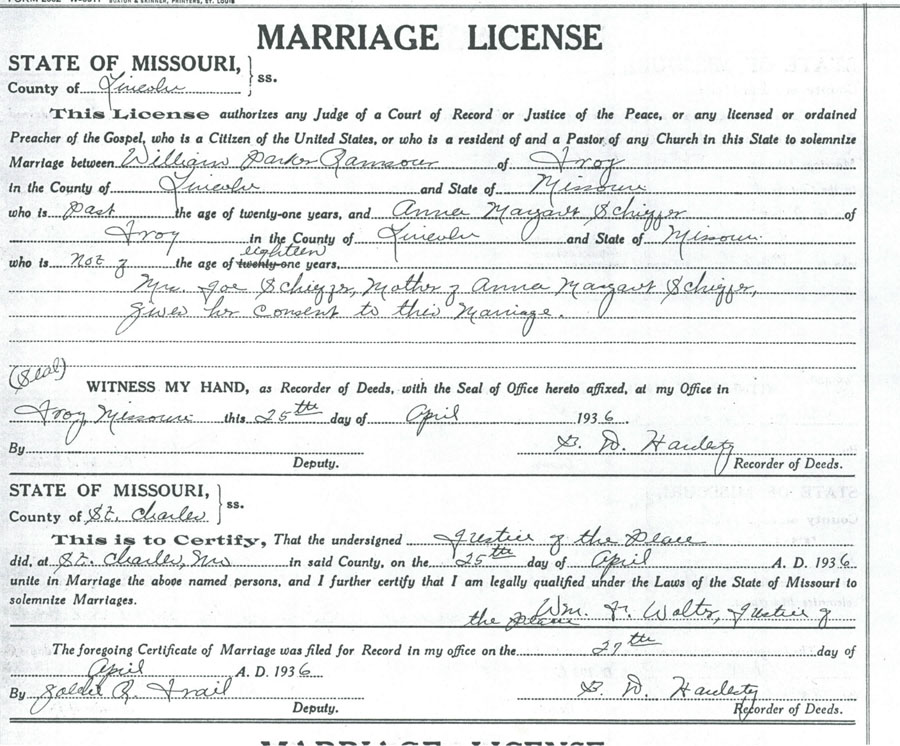 BUXTON & SKINNER, PRINTERS, ST. LOUIS
MARRIAGE LICENSE
STATE OF MISSOURI,
County of Lincoln } ss.
This License authorizes any Judge of a Court of Record or Justice of the Peace, or any licensed or ordained
Preacher of the Gospel, who is a Citizen of the United States, or who is a resident of and a Pastor of any Church in this State to solemnize
Marriage between William Parker Ramsour of Troy
in the County of Lincoln and State of Missouri
who is past the age of twenty-one years, and Anna Margaret Schieffer of
Troy in the County of Lincoln and State of Missouri
eighteen
who is not of the age of twenty-one years,
Mrs. Joe Schieffer, Mother of Anna Margaret Schieffer,
gives her consent to this Marriage.
(Seal)
WITNESS MY HAND, as Recorder of Deeds, with the Seal of Office hereto affixed, at my Office in
Troy Missouri this 25th day of April 1936.
By D. Hardesty
Deputy. Recorder of Deeds.
STATE OF MISSOURI,
County of St. Charles } ss.
This is to Certify, That the undersigned Justice of the Peace
did, at St. Charles, Mo in said County, on the 25th day of April A. D. 1936
unite in Marriage the above named persons, and I further certify that I am legally qualified under the Laws of the State of Missouri to
solemnize Marriages.
Wm. F. Wolter, Justice of
the Peace
The foregoing Certificate of Marriage was filed for Record in my office on the 27th day of
April A. D. 1936
By Goldie R. Trail D. Hardesty
Deputy. Recorder of Deeds.
MARRIAGE LICENSE